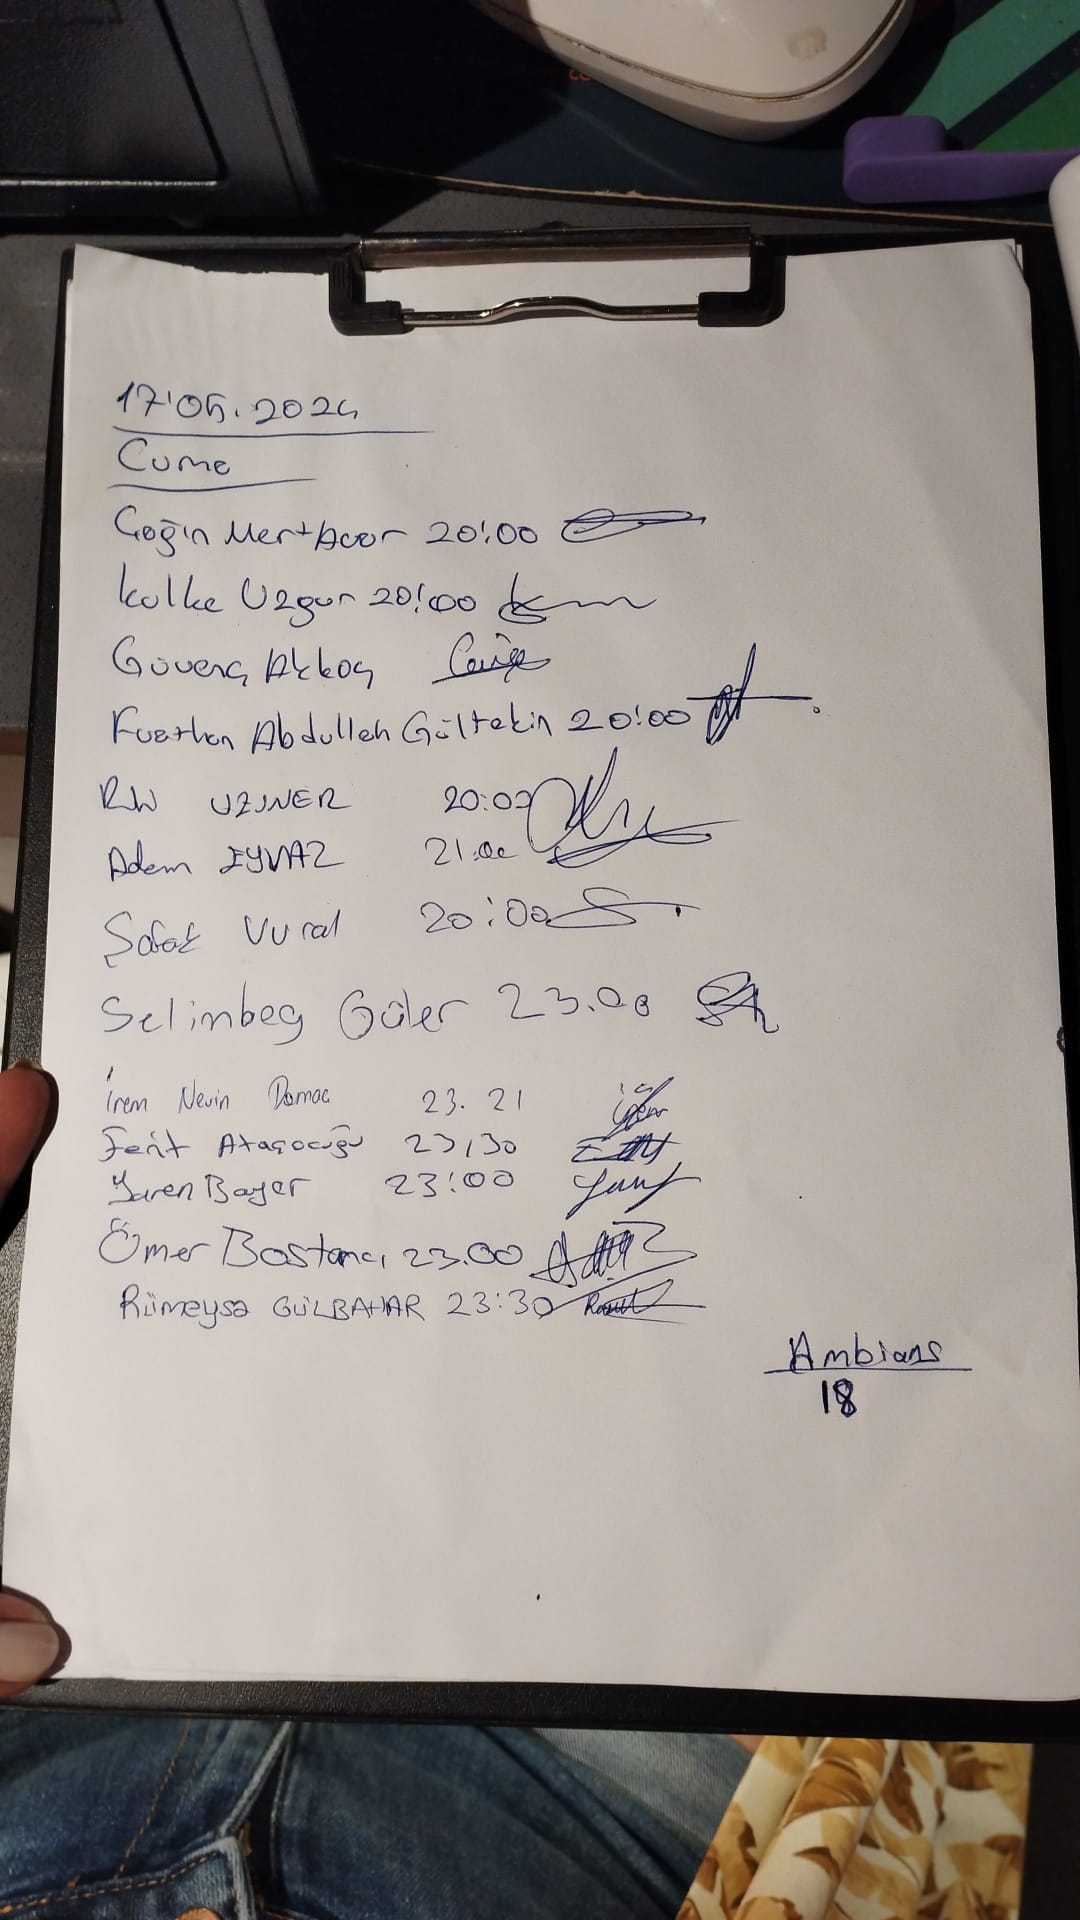 17.05.2024
Cuma
Çağın Mert Acar 20:00
Kutke Uzgur 20:00
Güvenç Akkoç
Fuathan Abdullah Gültekin 20:00
UZUNER 20:00
Adem EYVAZ 21:00
Şafak Vural 20:00
Selimbeg Güler 23.00
İrem Nevin Damac 23.21
Ferit Ataçocuğu 23:30
Yaren Bayer 23:00
Ömer Bostancı 23.00
Rümeysa GÜLBAHAR 23:30
Ambians
18